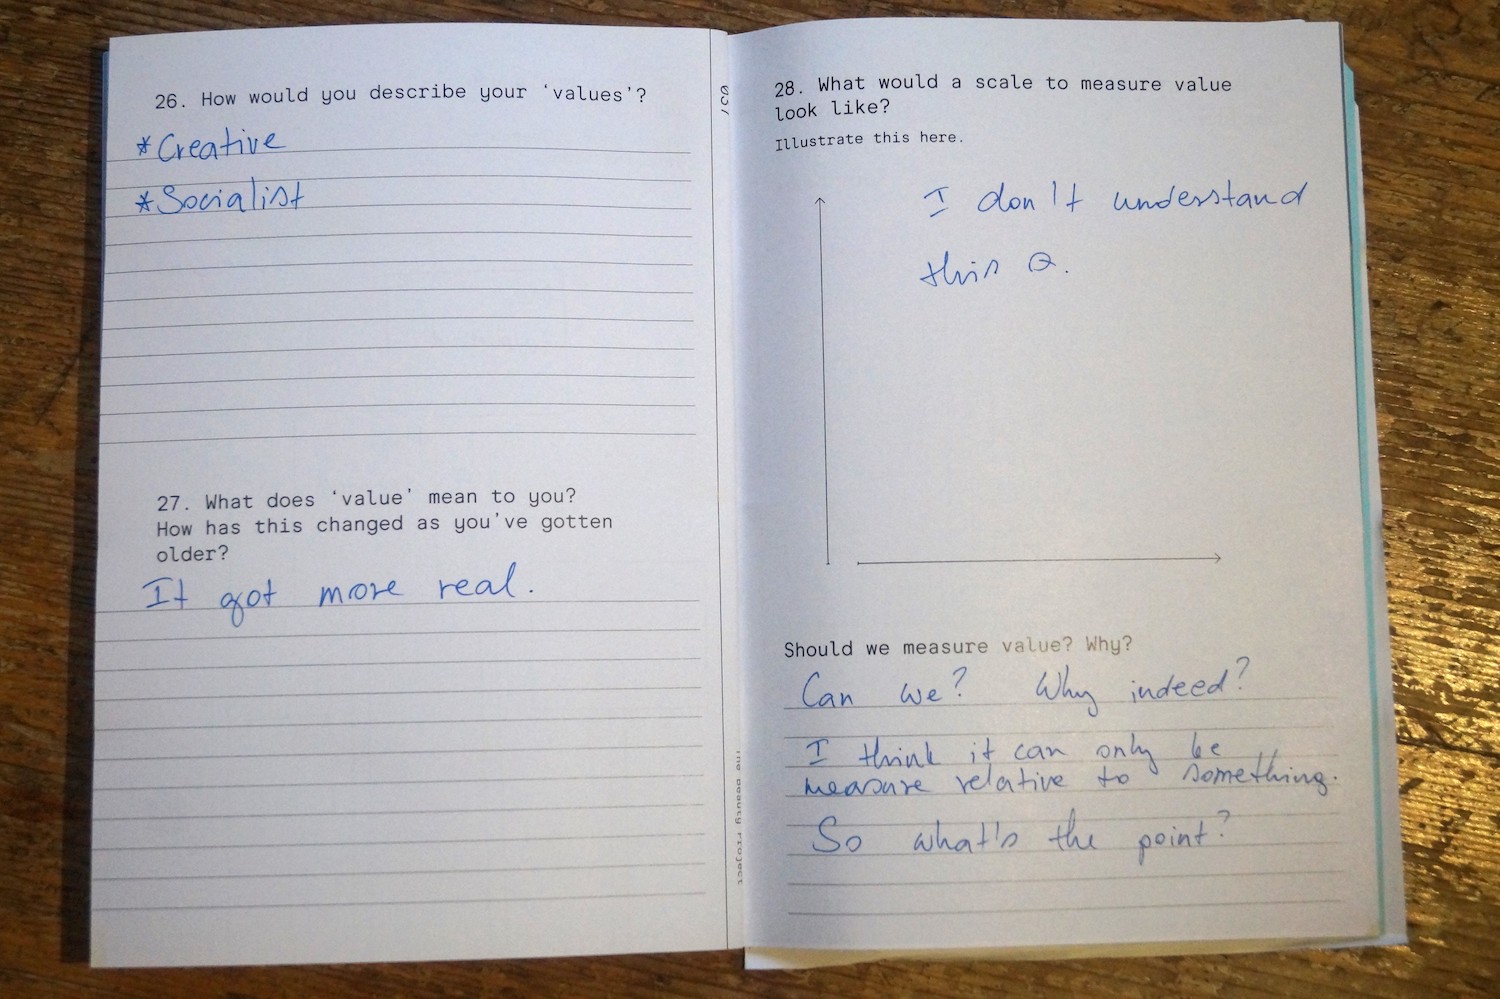 26. How would you describe your 'values'?
*Creative
*Socialist
27. What does 'value' mean to you?
How has this changed as you've gotten
older?
It got more real.
The Beauty Project
28. What would a scale to measure value
look like?
Illustrate this here.
I don't understand
this Q.
Should we measure value? Why?
Can we? Why indeed?
I think it can only be
measure relative to something.
So what's the point?